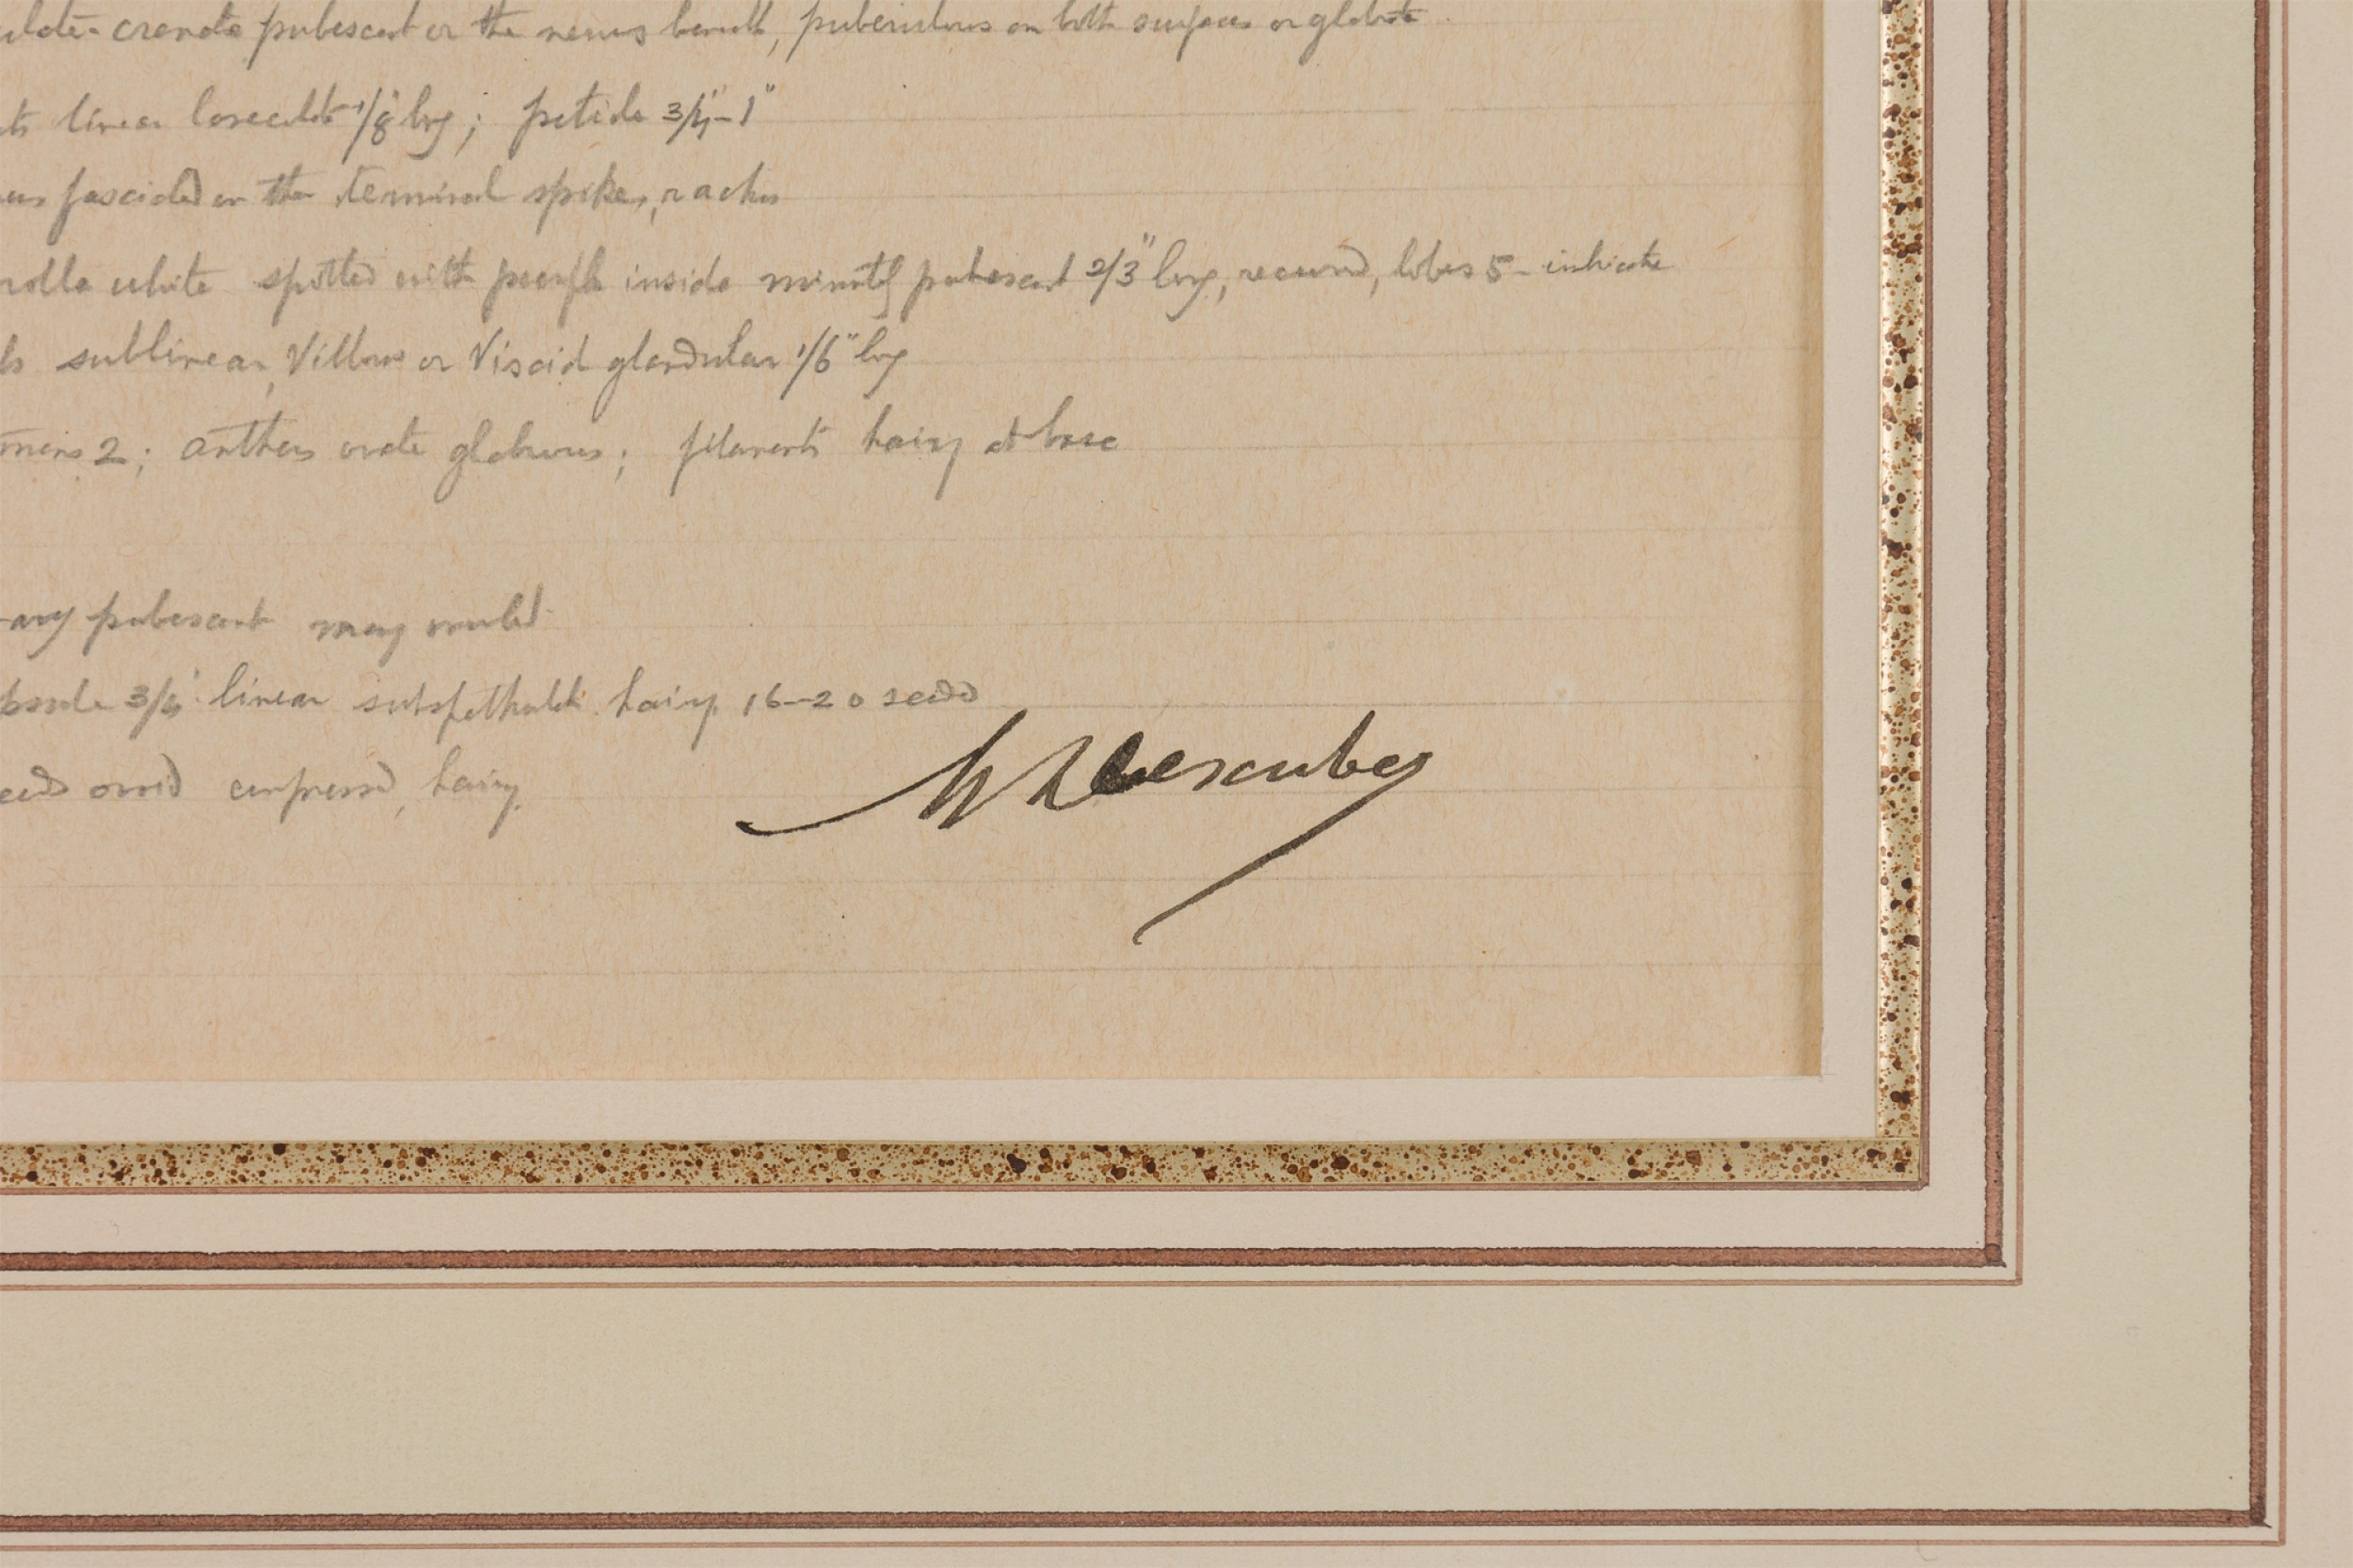 crenate pubescent or the nerves beneath, puberulous on both surfaces or glabrate
linear lanceolate 1/8" long; petiole 3/4"-1"
fascicled on the terminal spikes, rachis
rolla white spotted with purple inside minutely pubescent 2/3" long, recurved, lobes 5-imbricate
ls sublinear, Villous or Viscid glandular 1/6" long
mens 2; anthers ovate glabrous; filaments hairy at base
ary pubescent many ovuled
psule 3/4" linear subspathulate hairy, 16-20 seeds
eeds ovoid compressed, hairy,